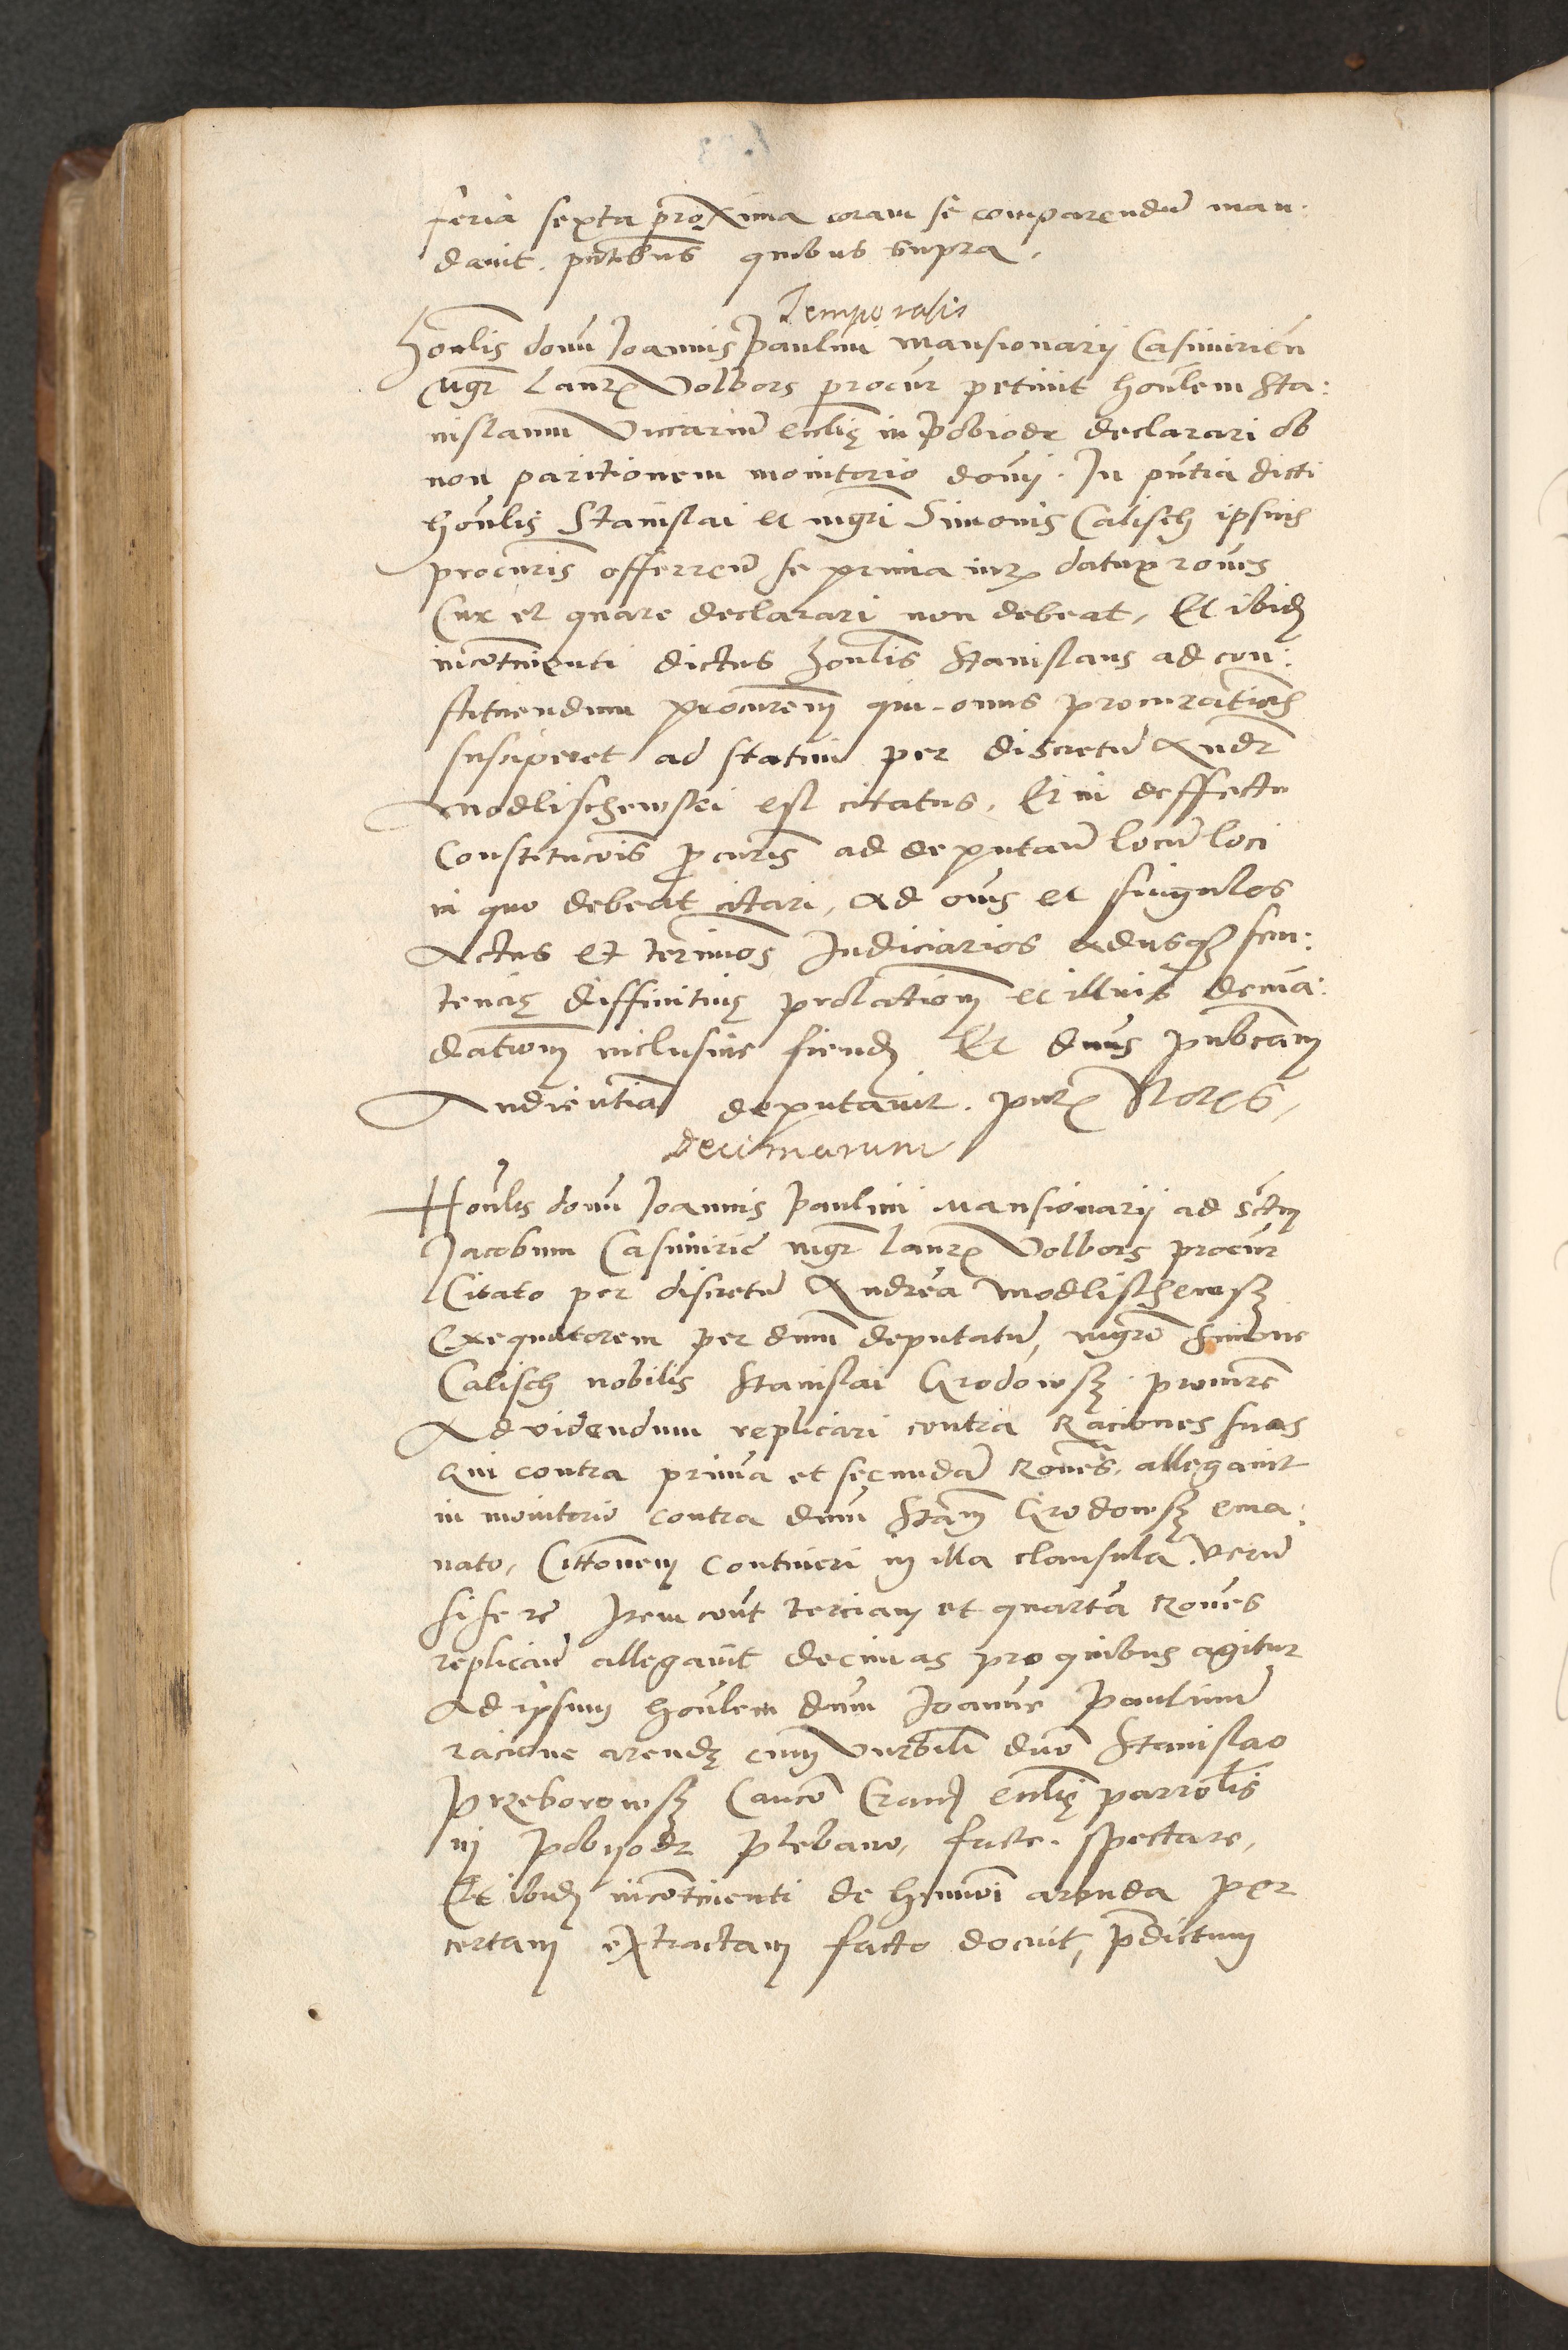 feria sexta proxima coram se comparendū man:
davit. pñtibus quibus supra.
Temporalis
Honlis domi Joannis Paulini mansionarij Casimirieñ
Mgr Laurẽ Volbors procur petivit honlem Sta:
nislaum Viccarium ecclię in Pobiodr declarari ob
non paritionem monitorio domi. In pñtia dicti
honlis Stanislai et mgri Simonis Calisch ipsius
procuris offerreñ se prima iur datur rones
Cur et quare declarari non debeat, Et ibidẽ
incontinenti dictus honlis Stanislaus ad con:
stituendum procurem qui onus procurationis
susciperet ad statim per discretū Andr
Modlischewski est citatus. Et in deffectu
Constitucois procuris ad deputanđ locū loci
in quo debeat citari, ad oms et singulos
Actus et terminos Judiciarios adusq sen:
tencię diffinitivę prolationem et illius demā:
dationem inclusive fiendẽ Et dnus publicam
Audientiā deputavit. pñt Noribus,
Decimarum
Honlis domi Joannis Paulini Mansionarij ad sctm
Jacobum Casimirie mgr Laurẽ Volbors procur
Citato per discretū Andrea Modlischewsƺ
Exequutorem per dnum deputatū, mgro Simone
Calisch nobilis Stanislai Grodowsƺ procure
Ad videndum replicari contra Raciones suas
Qui contra prima et secundā Rones allegavit
in monitorio contra dnum Stam Grodowsƺ ema:
nato, Cittonem contineri in illa clausula verū
si se re Item cont terciam et quartā Rones
replicañ allegavit decimas pro quibus agitur
Ad ipsum honlem dnum Joanne Paulinū
racione arendę cum Vnrbili dno Stanislao
Przeborowsƺ Canco Cracẽ ecclię parrolis
in Pobyodr plebano, facte. spectare,
Et ibidẽ incontinenti de hmmoi arenda per
certam extractam facto docuit, pdictum